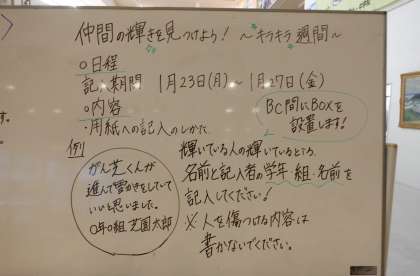 仲間の輝きを見つけよう! ~キラキラ週間~
○日程
記入期間 1月23日(月)~1月27日(金)
○内容
・用紙への記入のしかた
BC間にBOXを
設置します!
例
がん芝くんが
進んで雪かきをしていて
いいと思いました。
0年0組 芝国太郎
輝いている人の輝いているところ、
名前と記入者の学年 組 名前を
記入してください!
※人を傷つける内容は
書かないでください。
す。